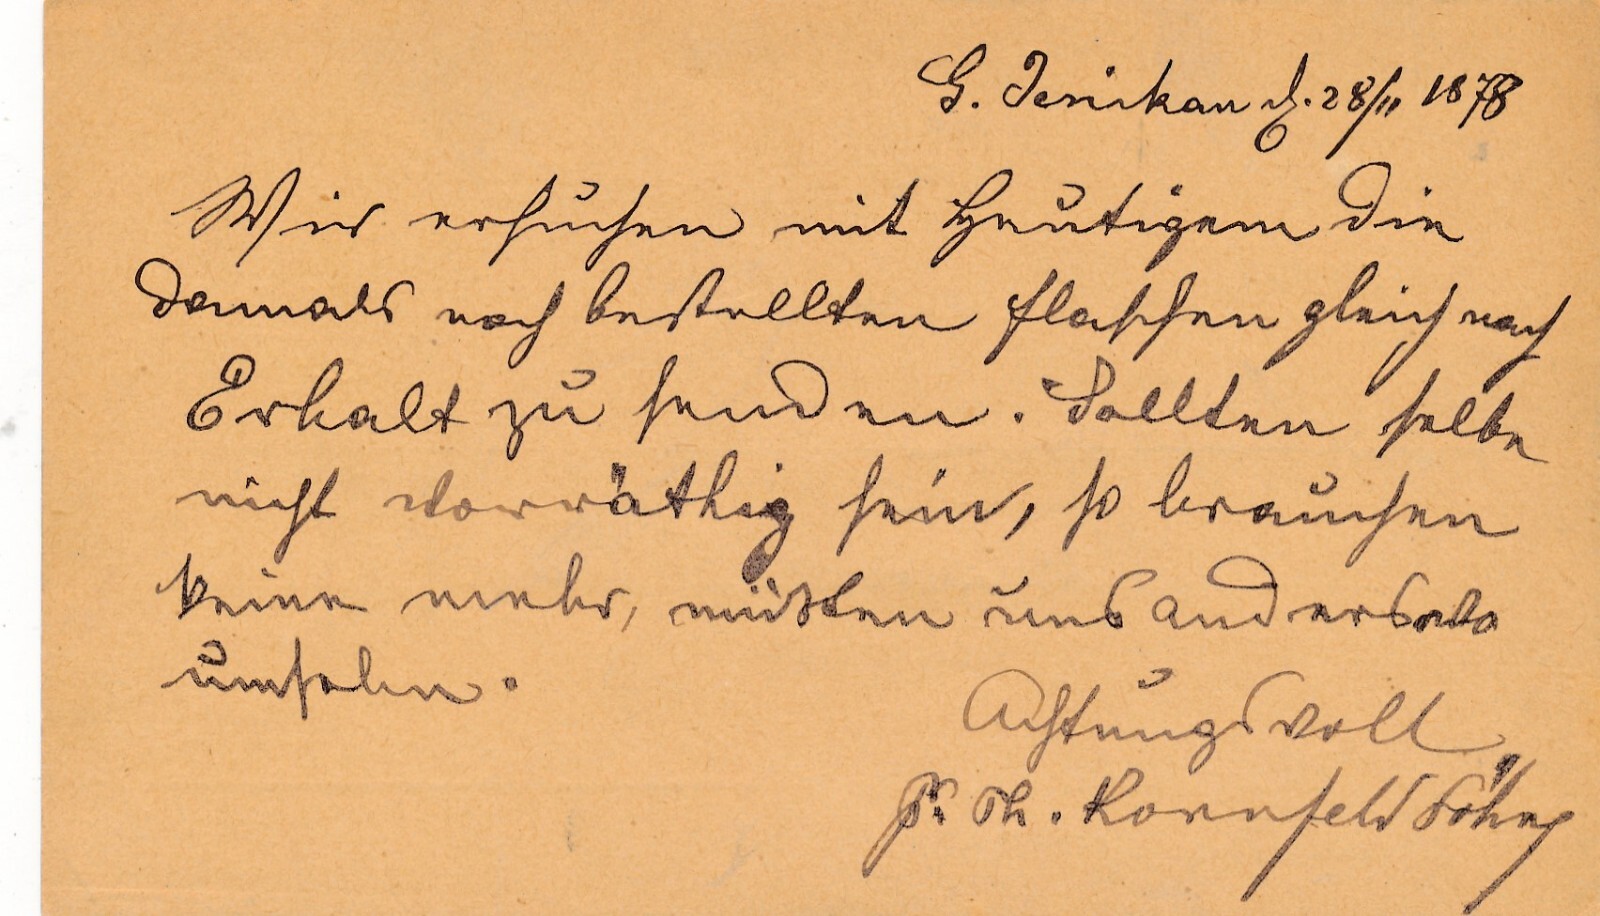 G. Jenikau d. 28/11 1878
Wir ersuchen mit Heutigem die
damals noch bestellten Flaschen gleich nach
Erhalt zu senden. Sollten selbe
nicht vorräthig sein, so brauchen
keine mehr, müßten uns anderswo
umsehn.
Achtungsvoll
Kornfeld Söhne